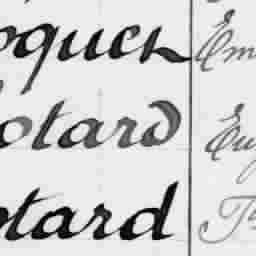 oquck Em
otard Eug
otard